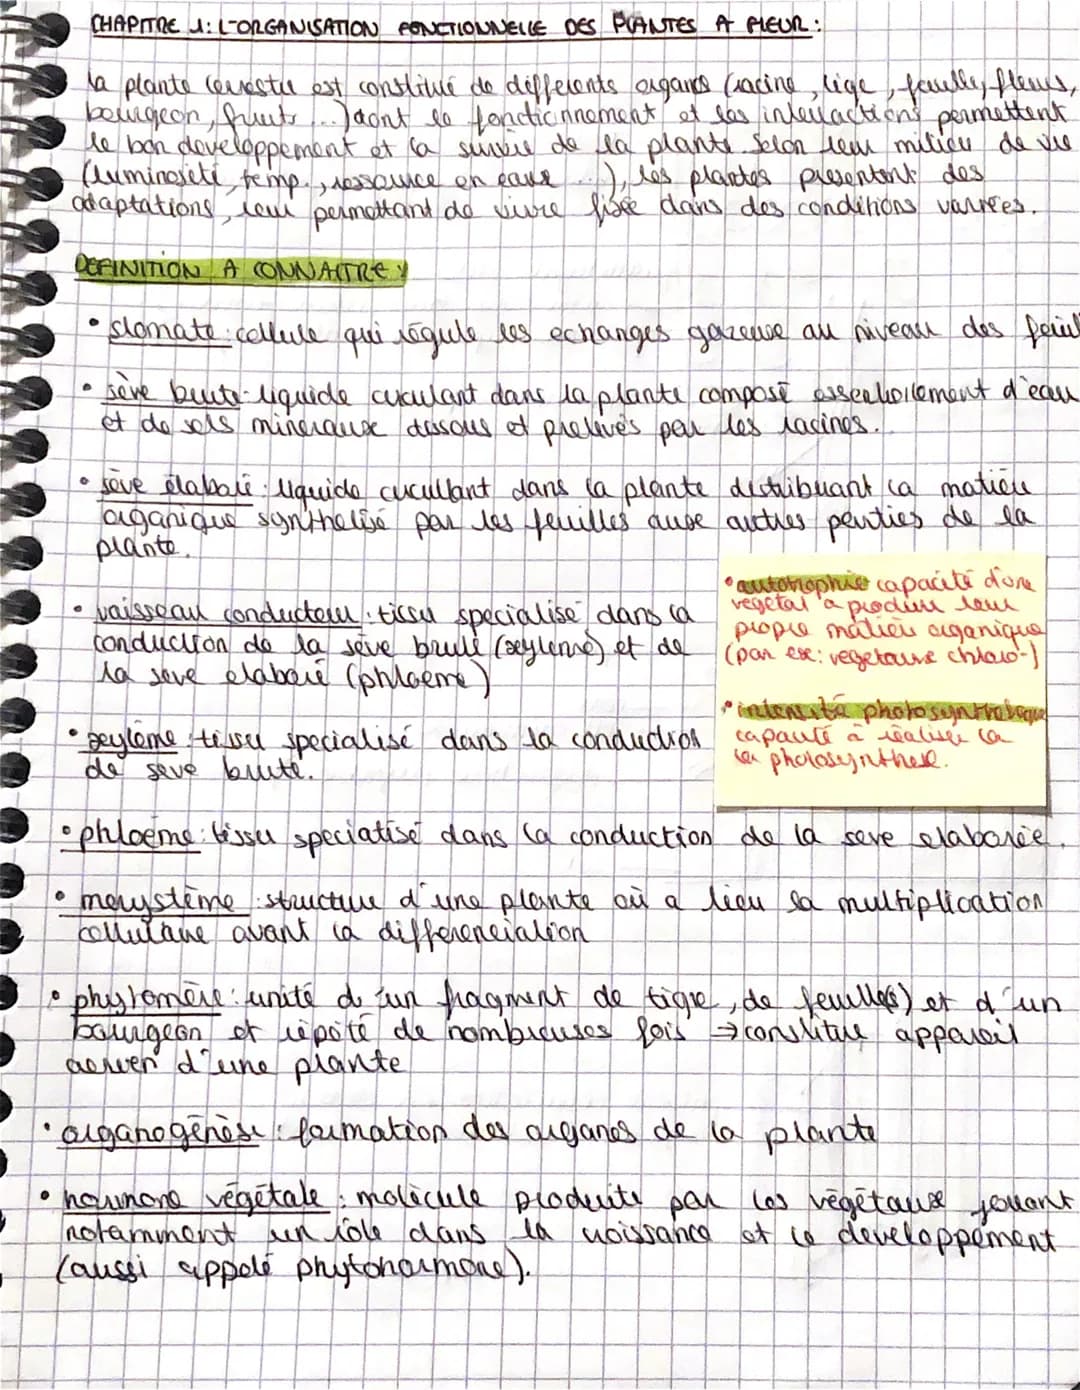 CHAPITRE 1: L'ORGANISATION FONCTIONNELLE DES PLANTES A FLEUR :
la plante terrestre est constitué de differents organes (racine, tige, feuille, fleurs,
bourgeon, fruits ...) dont le fonctionnement et les interactions permettent
le bon developpement et la survie de la plante. Selon leur milieu de vie
(luminosité, temp., ressource en eaux ...), les plantes presentent des
adaptations, leur permettant de vivre fixée dans des conditions variées.
DEFINITION A CONNAITRE :
• stomate : cellule qui régule les echanges gazeux au niveau des feuil
• sève brute : liquide circulant dans la plante composé essentiellement d'eau
et de sels mineraux dissous et prelevés par les racines.
• sève élaboré : liquide circullant dans la plante distribuant la matière
organique synthétisé par les feuilles aux autres parties de la
plante.
• vaisseau conducteur : tissu specialisé dans la
conduction de la sève brute (xylème) et de
la seve elaboré (phloeme)
• autotrophie capacité d'une
végétal a produire leur
propre matière organique
(par ex: vegetaux chloro-)
• intensité photosynthetique
capacité à réaliser la
la photosynthese.
• xylème : tissu specialisé dans la conduction
de seve brute.
• phloème : tissu specialisé dans la conduction de la seve elaborée.
• merystème : structure d'une plante où a lieu la multiplication
cellulaire avant la différenciation
• phytomère : unité d'un fragment de tige, de feuille(s) et d'un
bourgeon et répété de nombreuses fois → constitue appareil
aerien d'une plante
• organogénèse : formation des organes de la plante
• hormone végétale : molécule produite par les végétaux jouant
notamment un rôle dans la croissance et le developpement
(aussi appelé phytohormone).